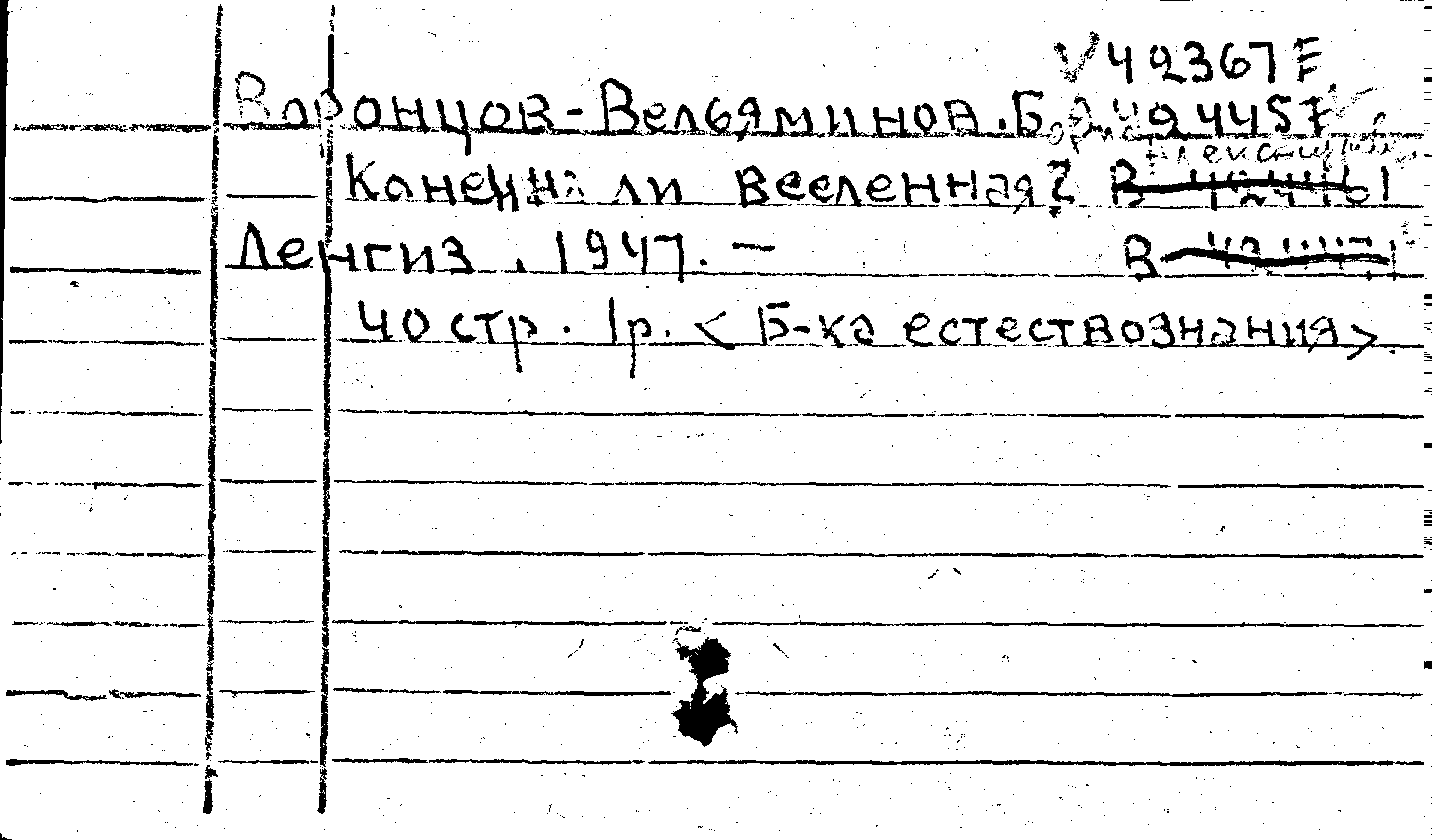 V 42367 F
Воронцов-Вельяминов. Б. 424457
Конечна ли Вселенная? В
Ленгиз, 1947. — В
40 стр. 1р. < Б-ка естествознания >.